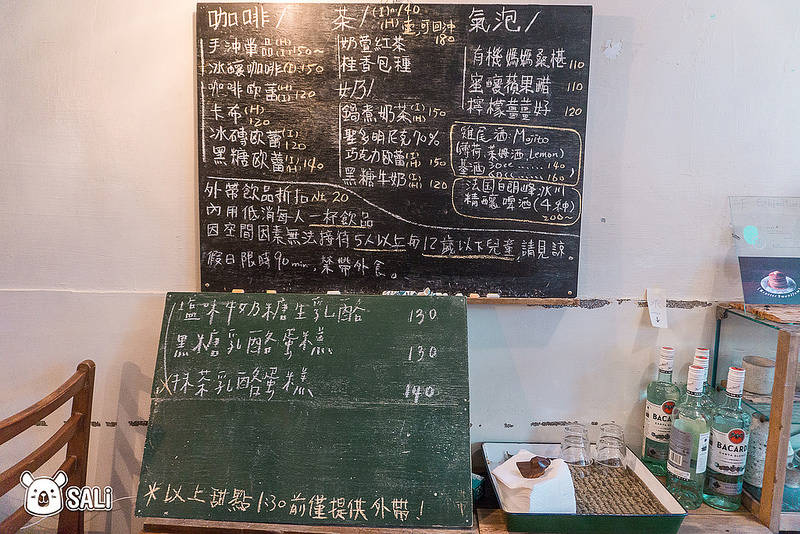 咖啡/
手沖單品(H)(I)150~
冰釀咖啡(I)150
咖啡歐蕾(H)(I)120
卡布(H)120
冰磚歐蕾(I)120
黑糖歐蕾(I)(H)140
茶/(I)140
(H)壺,可回沖180
奶萱紅茶
桂香包種
奶/
鍋煮奶茶(I)(H)150
聖多明尼克70%
巧克力歐蕾(I)(H)150
黑糖牛奶(I)(H)120
氣泡/
有機媽媽桑椹110
蜜釀蘋果醋110
檸檬薑薑好120
雞尾酒:Mojito
(薄荷、萊姆酒、Lemon)
基酒30cc……140
60cc……160
法国白朗峰冰川
精釀啤酒(4种)
200~
外帶飲品折扣Nt.20
內用低消每人一杯飲品
因空間因素無法接待5人以上与12歲以下兒童,請見諒。
假日限時90min,禁帶外食。
塩味牛奶糖生乳酪 130
黑糖乳酪蛋糕 130
×抹茶乳酪蛋糕 140
*以上甜點1:30前僅提供外帶!
BACARDI
BACARDI
SALi